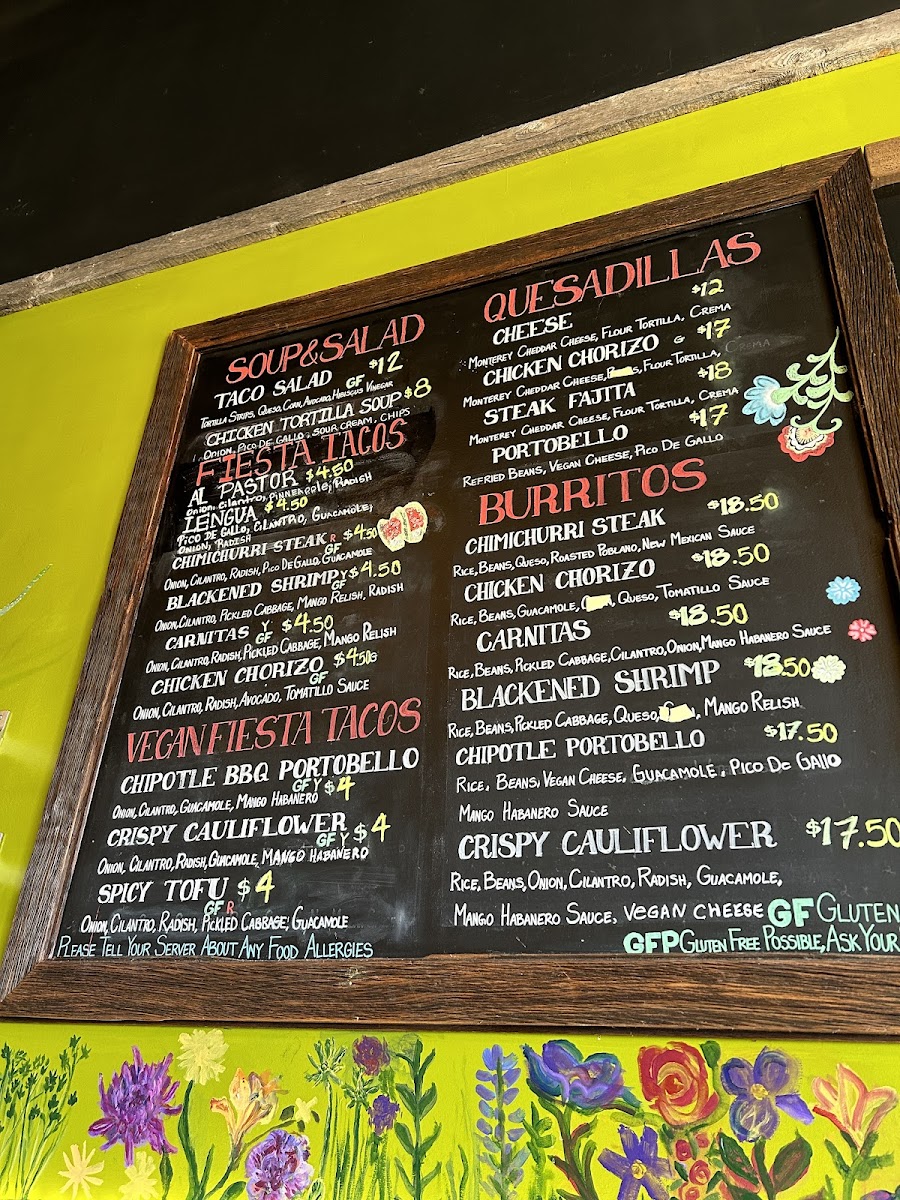 SOUP&SALAD
TACO SALAD GF $12
TORTILLA STRIPS, QUESO, CORN, AVOCADO, HIBISCUS VINEGAR
CHICKEN TORTILLA SOUP $8
ONION, PICO DE GALLO, SOUR CREAM, CHIPS
FIESTA TACOS
AL PASTOR $4.50
ONION, CILANTRO, PINNEAPPLE, RADISH
LENGUA $4.50
PICO DE GALLO, CILANTRO, GUACAMOLE,
ONION, RADISH
CHIMICHURRI STEAK R GF $4.50
ONION, CILANTRO, RADISH, PICO DE GALLO, GUACAMOLE
BLACKENED SHRIMP Y GF $4.50
ONION, CILANTRO, PICKLED CABBAGE, MANGO RELISH, RADISH
CARNITAS Y GF $4.50
ONION, CILANTRO, RADISH, PICKLED CABBAGE, MANGO RELISH
CHICKEN CHORIZO GF $4.50 G
ONION, CILANTRO, RADISH, AVOCADO, TOMATILLO SAUCE
VEGAN FIESTA TACOS
CHIPOTLE BBQ PORTOBELLO
GF Y $4
ONION, CILANTRO, GUACAMOLE, MANGO HABANERO
CRISPY CAULIFLOWER
GF Y $4
ONION, CILANTRO, RADISH, GUACAMOLE, MANGO HABANERO
SPICY TOFU $4
GF R
ONION, CILANTRO, RADISH, PICKLED CABBAGE, GUACAMOLE
PLEASE TELL YOUR SERVER ABOUT ANY FOOD ALLERGIES
QUESADILLAS
CHEESE $12
MONTEREY CHEDDAR CHEESE, FLOUR TORTILLA, CREMA
CHICKEN CHORIZO G $17
MONTEREY CHEDDAR CHEESE, FLOUR TORTILLA, CREMA
STEAK FAJITA $18
MONTEREY CHEDDAR CHEESE, FLOUR TORTILLA, CREMA
PORTOBELLO $17
REFRIED BEANS, VEGAN CHEESE, PICO DE GALLO
BURRITOS
CHIMICHURRI STEAK $18.50
RICE, BEANS, QUESO, ROASTED POBLANO, NEW MEXICAN SAUCE
CHICKEN CHORIZO $18.50
RICE, BEANS, GUACAMOLE, QUESO, TOMATILLO SAUCE
CARNITAS $18.50
RICE, BEANS, PICKLED CABBAGE, CILANTRO, ONION, MANGO HABANERO SAUCE
BLACKENED SHRIMP $18.50
RICE, BEANS, PICKLED CABBAGE, QUESO, MANGO RELISH
CHIPOTLE PORTOBELLO $17.50
RICE, BEANS, VEGAN CHEESE, GUACAMOLE, PICO DE GALLO
MANGO HABANERO SAUCE
CRISPY CAULIFLOWER $17.50
RICE, BEANS, ONION, CILANTRO, RADISH, GUACAMOLE,
MANGO HABANERO SAUCE, VEGAN CHEESE GF GLUTEN
GFP GLUTEN FREE POSSIBLE, ASK YOUR